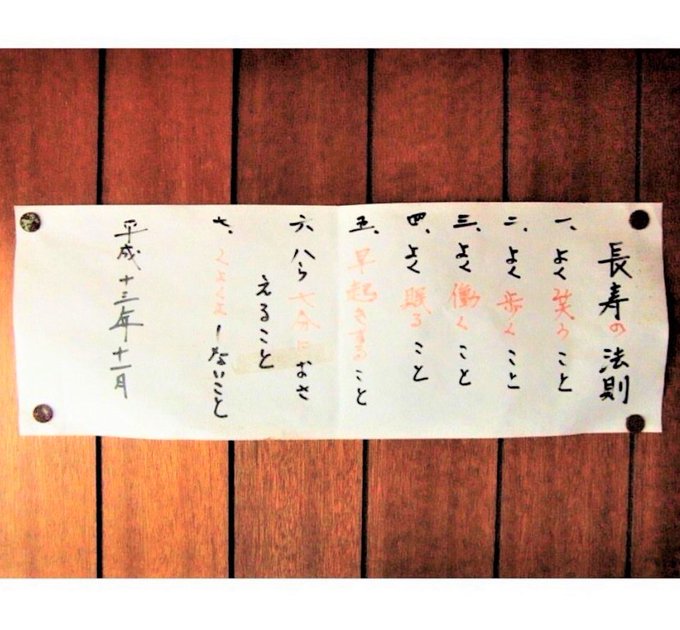 長寿の法則
一、よく笑うこと
二、よく歩くこと
三、よく働くこと
四、よく眠ること
五、早起きすること
六、ハラ七分におさ
えること
七、くよくよしないこと
平成十三年十一月